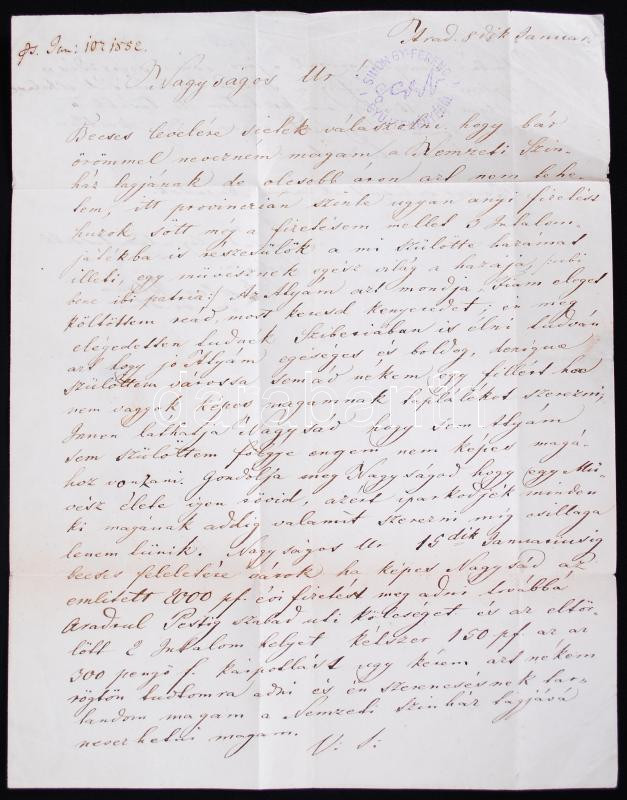 Arad. 8dik Januar.
Jan: 10n 1852.
Nagyságos Ur!
SIMON GY. FERENC
Becses levelére sietek válaszolni, hogy bár
örömmel nevezném magam a Nemzeti Szin-
ház tagjának de olcsobb áron azt nem tehe-
tem, itt provinczian szinte ugyan anyi fizetést
huzok sött még a fizetésem mellet 3 Jutalom-
játékba is részesülök a mi szülötte hazámat
illeti, egy müvésznek egész világ a hazája /:ubi
bene ibi patria:/ Az Atyám azt mondja, Fiam eleget
költöttem reád most keresd kenyeredet, én meg
elégedetten tudnék Sziberiában is élni tudván
azt hogy jó Atyám egéséges és boldog, denique
szülöttem városa sem ád nékem egy fillért ha
nem vagyok képes magamnak táplálékot szerezni,
Innen láthatja Nagysád hogy sem Atyám
sem szülöttem földgye engem nem képes magá-
hoz vonzani. Gondolja meg Nagyságod hogy egy Mü-
vész élete igen rövid, azért iparkodjék minden
ki magának addig valamit szerezni míg csillaga
lenem tünik. Nagyságos Ur 15dik Januariusig
becses feleletére várok ha képes Nagysád az
emlitett 2000 pf. évi fizetést meg adni továbbá
Aradrul Pestig szabad uti költségét és az eltör-
lött 2 Jutalom helyet kétszer 150 pf. az az
300 pengő f. kárpotlást ugy kérem azt nékem
rögtön tudtomra adni és én szerencsésnek tar-
tandom magam a Nemzeti Szinház tagjává
nevezhetni magam.
V. S.
darabanth